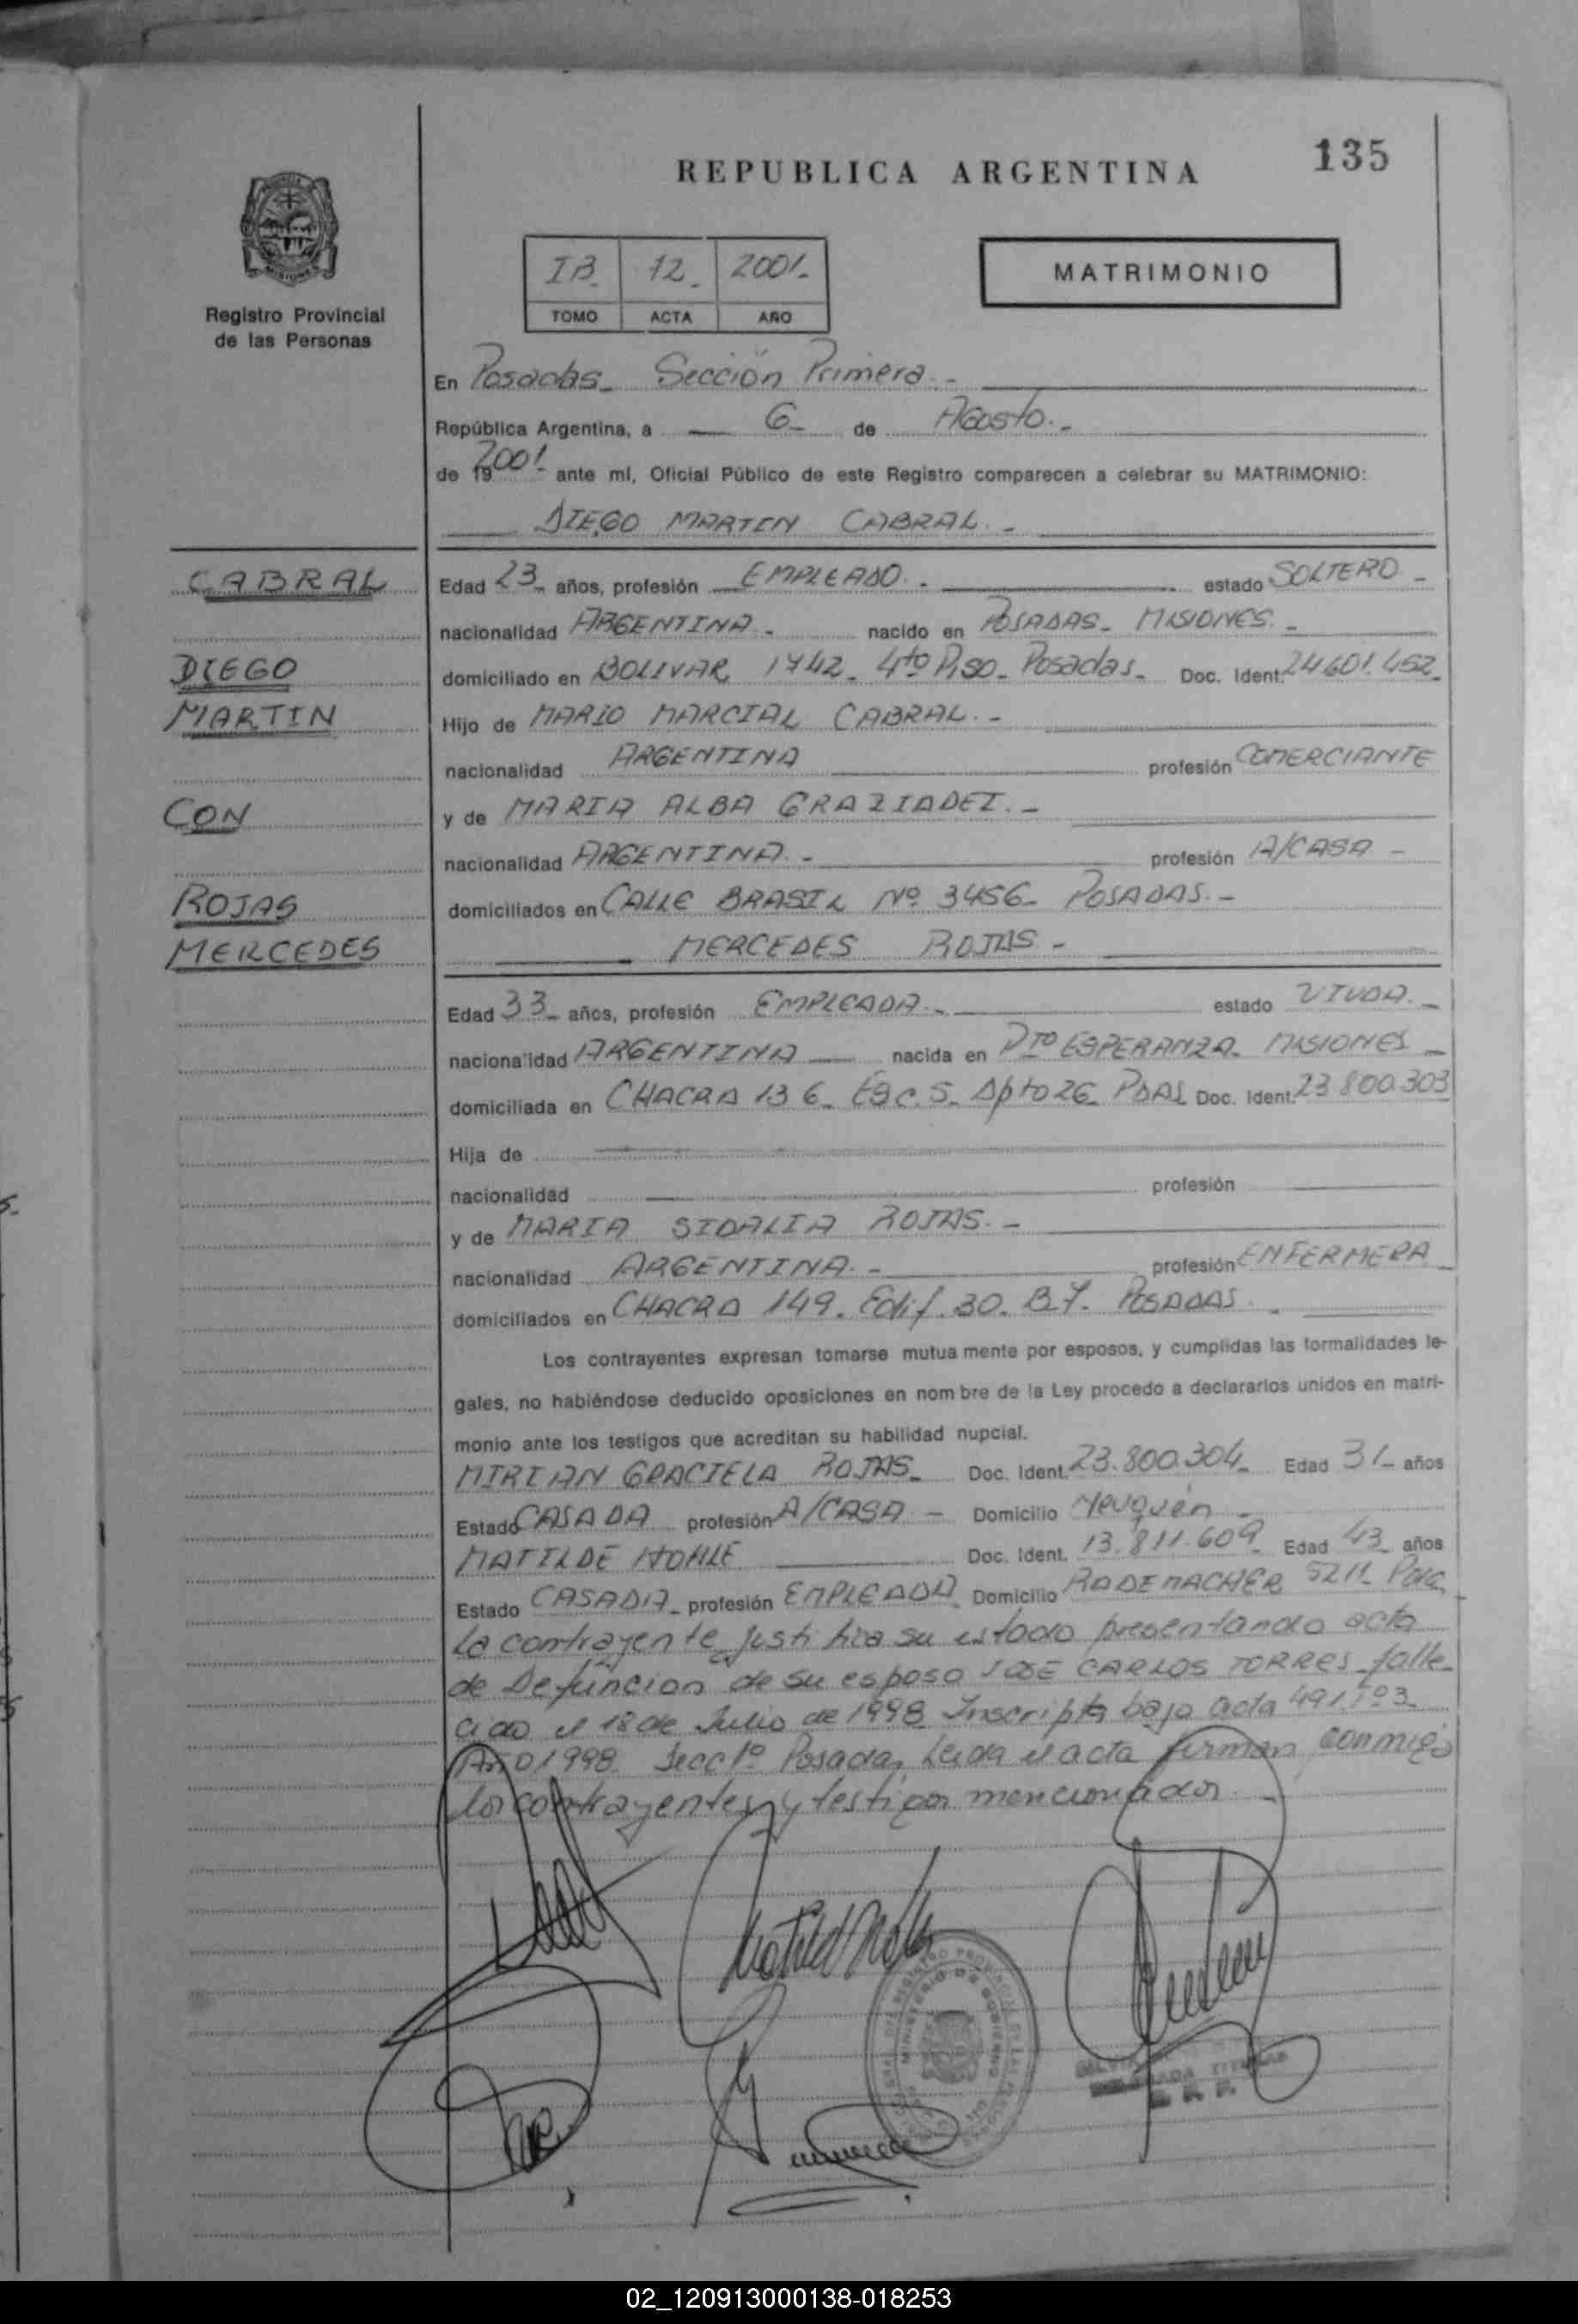 135
REPUBLICA ARGENTINA
IB. 12. 2001.
TOMO ACTA AÑO
MATRIMONIO
Registro Provincial
de las Personas
En Posadas Sección Primera
República Argentina, a 6 de Agosto
de 19 2001 ante mí, Oficial Público de este Registro comparecen a celebrar su MATRIMONIO:
DIEGO MARTIN CABRAL
CABRAL
DIEGO
MARTIN
CON
ROJAS
MERCEDES
Edad 23 años, profesión EMPLEADO estado SOLTERO
nacionalidad ARGENTINA nacido en POSADAS MISIONES
domiciliado en BOLIVAR 1742 4to Piso Posadas Doc. Ident. 24.601.452
Hijo de MARIO MARCIAL CABRAL
nacionalidad ARGENTINA profesión COMERCIANTE
y de MARIA ALBA GRAZIADEI
nacionalidad ARGENTINA profesión A/CASA
domiciliados en CALLE BRASIL Nº 3456 POSADAS
MERCEDES ROJAS
Edad 33 años, profesión EMPLEADA estado VIUDA
nacionalidad ARGENTINA nacida en Pto ESPERANZA MISIONES
domiciliada en CHACRA 136 Esc. 5 Dpto 26 PDAS Doc. Ident. 23.800.303
Hija de
nacionalidad profesión
y de MARIA SIDALIA ROJAS
nacionalidad ARGENTINA profesión ENFERMERA
domiciliados en CHACRA 149 Edif. 30 B7 POSADAS
Los contrayentes expresan tomarse mutuamente por esposos, y cumplidas las formalidades le-
gales, no habiéndose deducido oposiciones en nombre de la Ley procedo a declararlos unidos en matri-
monio ante los testigos que acreditan su habilidad nupcial.
MIRIAN GRACIELA ROJAS Doc. Ident. 23.800.304 Edad 31 años
Estado CASADA profesión A/CASA Domicilio Neuquén
MATILDE Doc. Ident. 13.811.609 Edad 43 años
Estado CASADA profesión EMPLEADA Domicilio RADEMACHER 5211
La contrayente justifica su estado presentando acta
de Defuncion de su esposo JOSE CARLOS TORRES falle-
cido el 18 de Julio de 1998 Inscripta bajo acta 491 Tº 3
Año 1998 Secc 1º Posadas Leida el acta firman conmigo
los contrayentes y testigos mencionados
REGISTRO PROVINCIAL DE LAS PERSONAS
MINISTERIO DE GOBIERNO
02_120913000138-018253